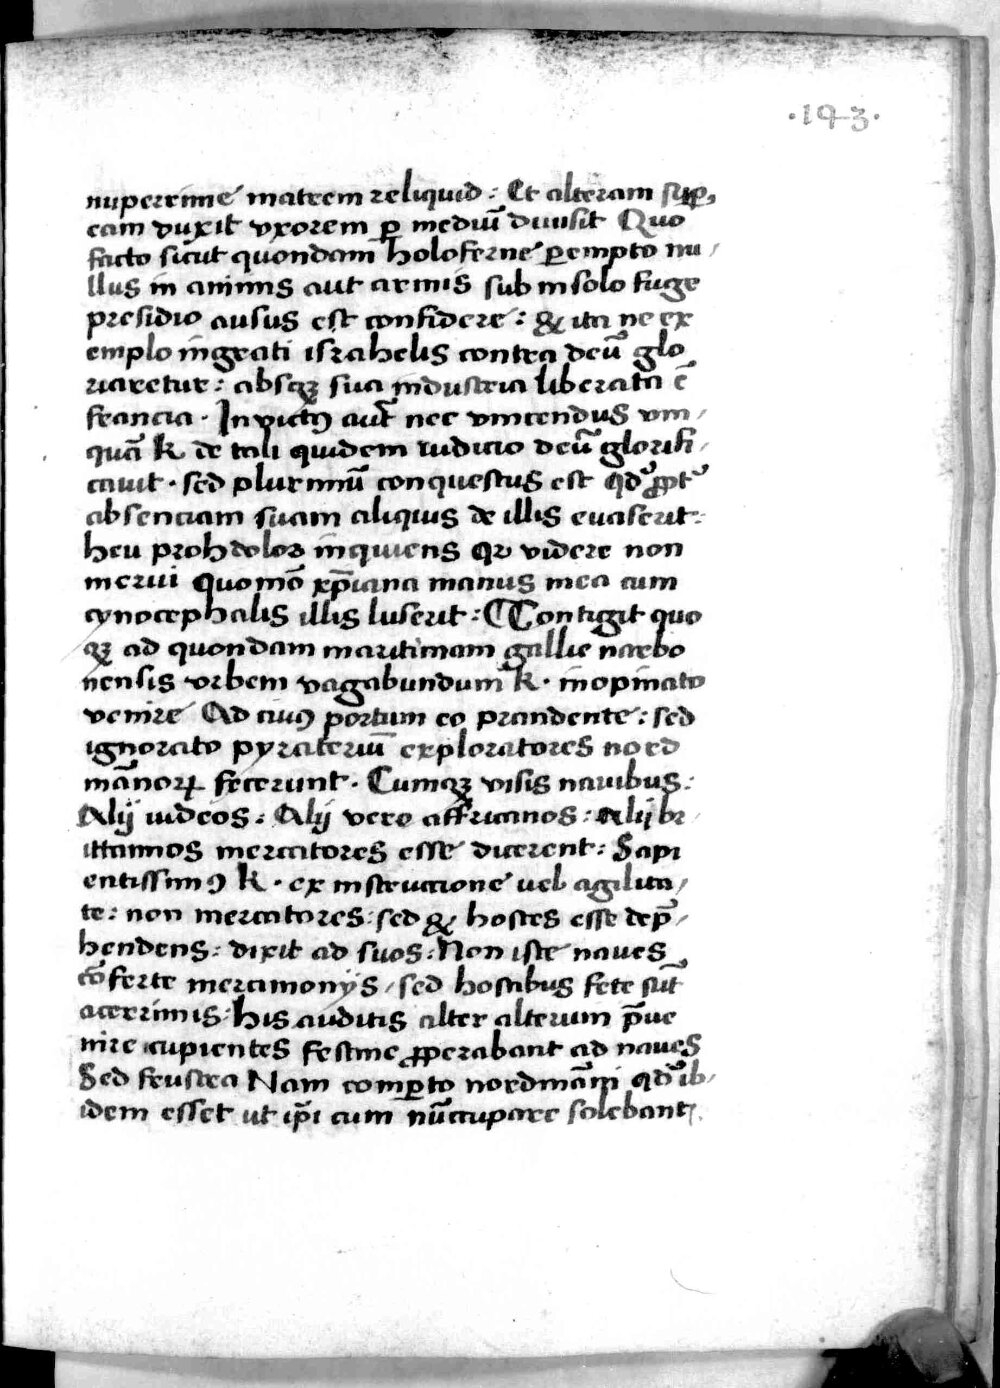 ·143·
nuperrime matrem reliquid : Et alteram sup̱
eam duxit vxorem ꝑ mediū diuisit Quo
facto sicut quondam holoferne ꝑempto nu /
llus in animis aut armis sub in solo fuge
presidio ausus est confidere : & ita ne ex
emplo ingrati israhelis contra deū glo
riaretur : absqꝫ sua industria liberata ē
francia · Inuictꝰ aut̄ nec vincendus vm /
quā K de tali quidem iudicio deū glorifi /
cauit · sed plurimū conquestus est qd̓ ꝓpt̓
absenciam suam aliquis de illis euaserit :
heu proh dolor inquiens qꝛ videre non
merui quomō xp̄iana manus mea cum
cynocephalis illis luserit : Contigit quo
qꝫ ad quondam maritimam gallie narbo
nensis vrbem vagabundum K · inopinato
venire Ad cuiꝰ portum eo prandente : sed
ignorato pyraterium exploratores nord
mānoꝝ fecerunt · Cumqꝫ visis nauibus :
Alij iudeos : Alij vero affricanos : alij br /
ittannos mercatores esse dicerent : Sapi
entissimꝰ K · ex instructione uel agilita /
te : non mercatores : sed & hostes esse dep̄ /
hendens : dixit ad suos : Non iste naues
cōferte mercimonijs / sed hostibus fete sūt
acerrimis : his auditis alter alterum p̄ue
nire cupientes festine ꝓperabant ad naues
Sed frustra Nam comꝑto nordmāni qd̓ ib /
idem esset ut ip̄i cum nūccupare solebant